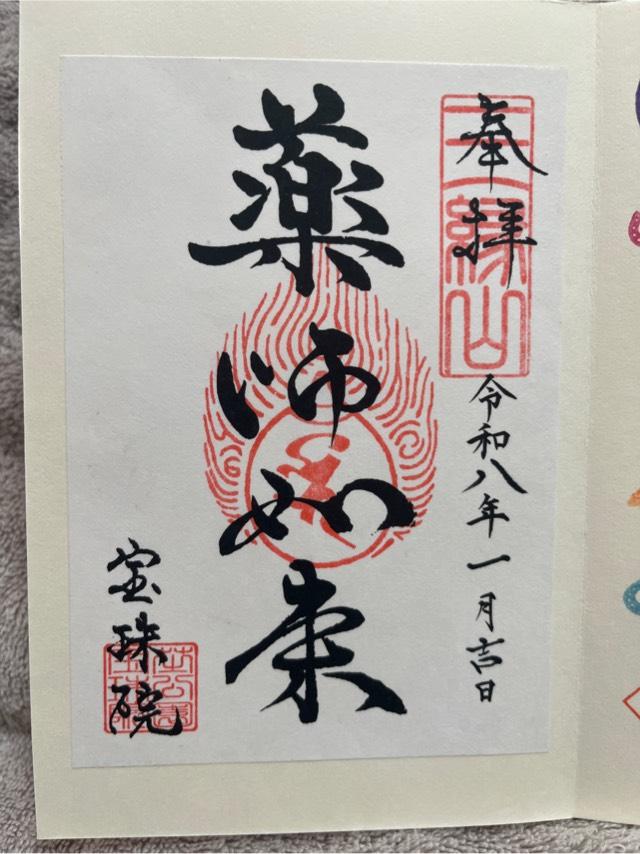 奉拝
三縁山
令和八年一月吉日
薬師如来
宝珠院